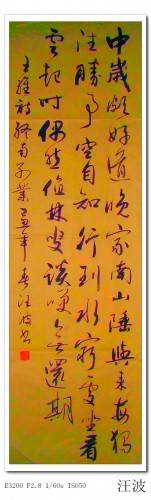 中歲頗好道晚家南山陲興來每獨
往勝事空自知行到水窮處坐看
雲起时偶然值林叟談咲無還期
王維詩終南別業己丑年春汪波书
E3200 F2.8 1/60s ISO50
汪波